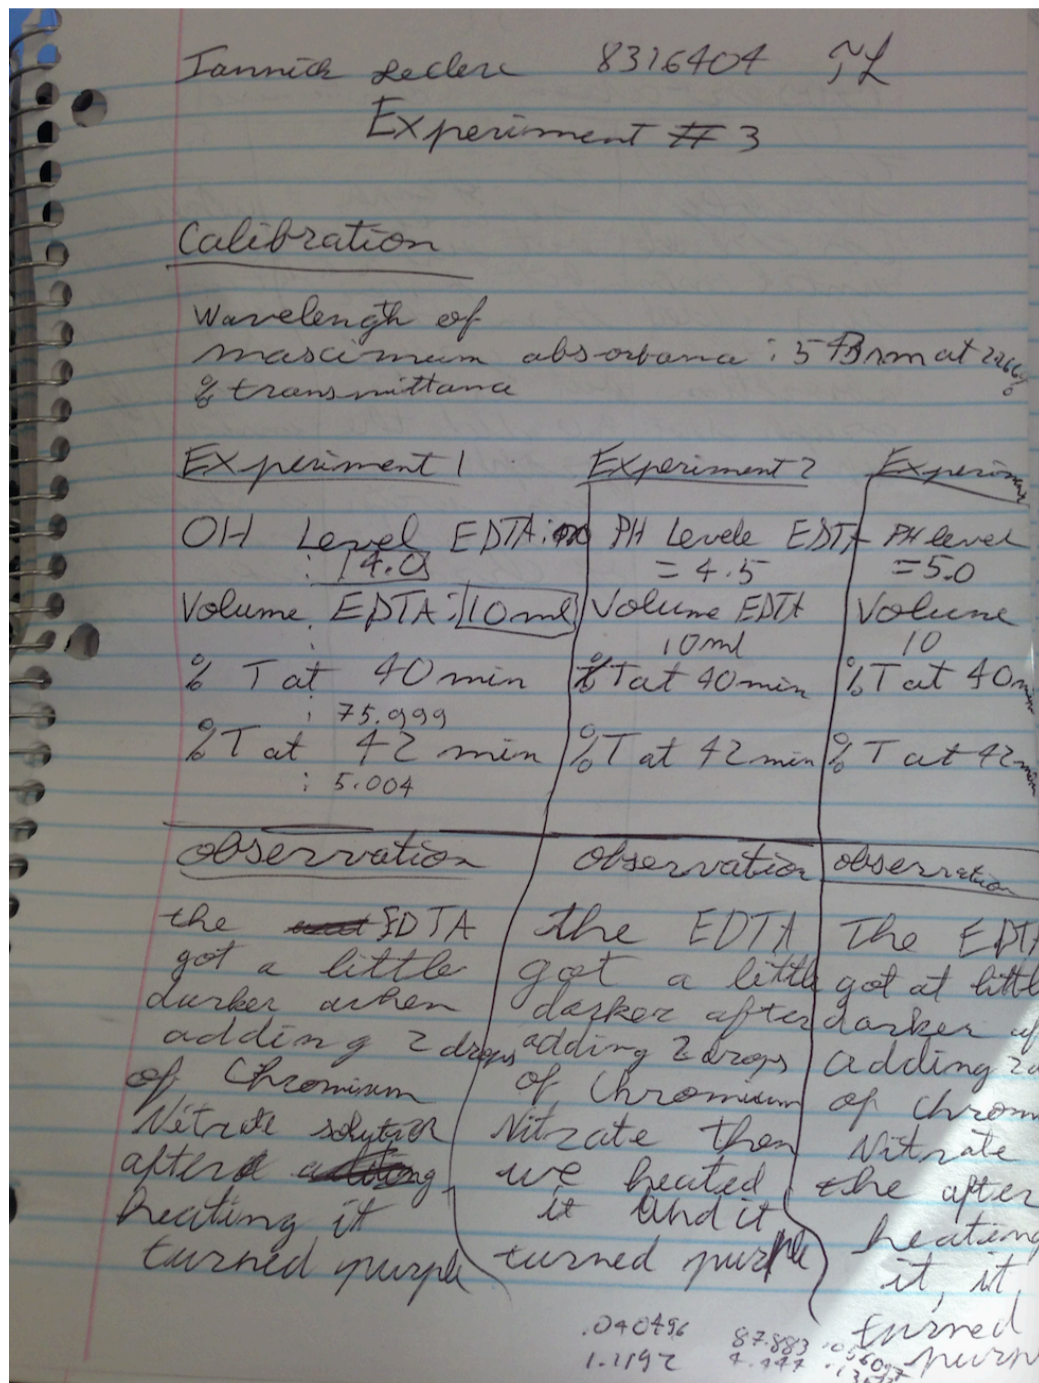 Yannick Leclerc 8316404 YL
Experiment # 3
Calibration
Wavelength of
mascimum absorbana : 543 nm at
% transmittana
Experiment 1
OH Level EDTA:
: 4.0
Volume EDTA: 10ml
% T at 40 min
: 75.999
% T at 42 min
: 5.004
Observation
the EDTA
got a little
darker when
adding 2 drops
of Chromium
Nitrate solution
after
heating it
turned purple
Experiment 2
PH Levele EDTA
= 4.5
Volume EDTA
10ml
% T at 40 min
% T at 42 min
Observation
the EDTA
got a little
darker after
adding 2 drops
of Chromium
Nitrate then
we heated
it and it
turned purple
Experiment
PH level
= 5.0
Volume
10
% T at 40 m
% T at 42 m
observation
The EDTA
got at littl
darker af
adding 2 d
of chrom
Nitrate
the after
heating
it, it,
turned
purp
.040496 87.883
1.1192